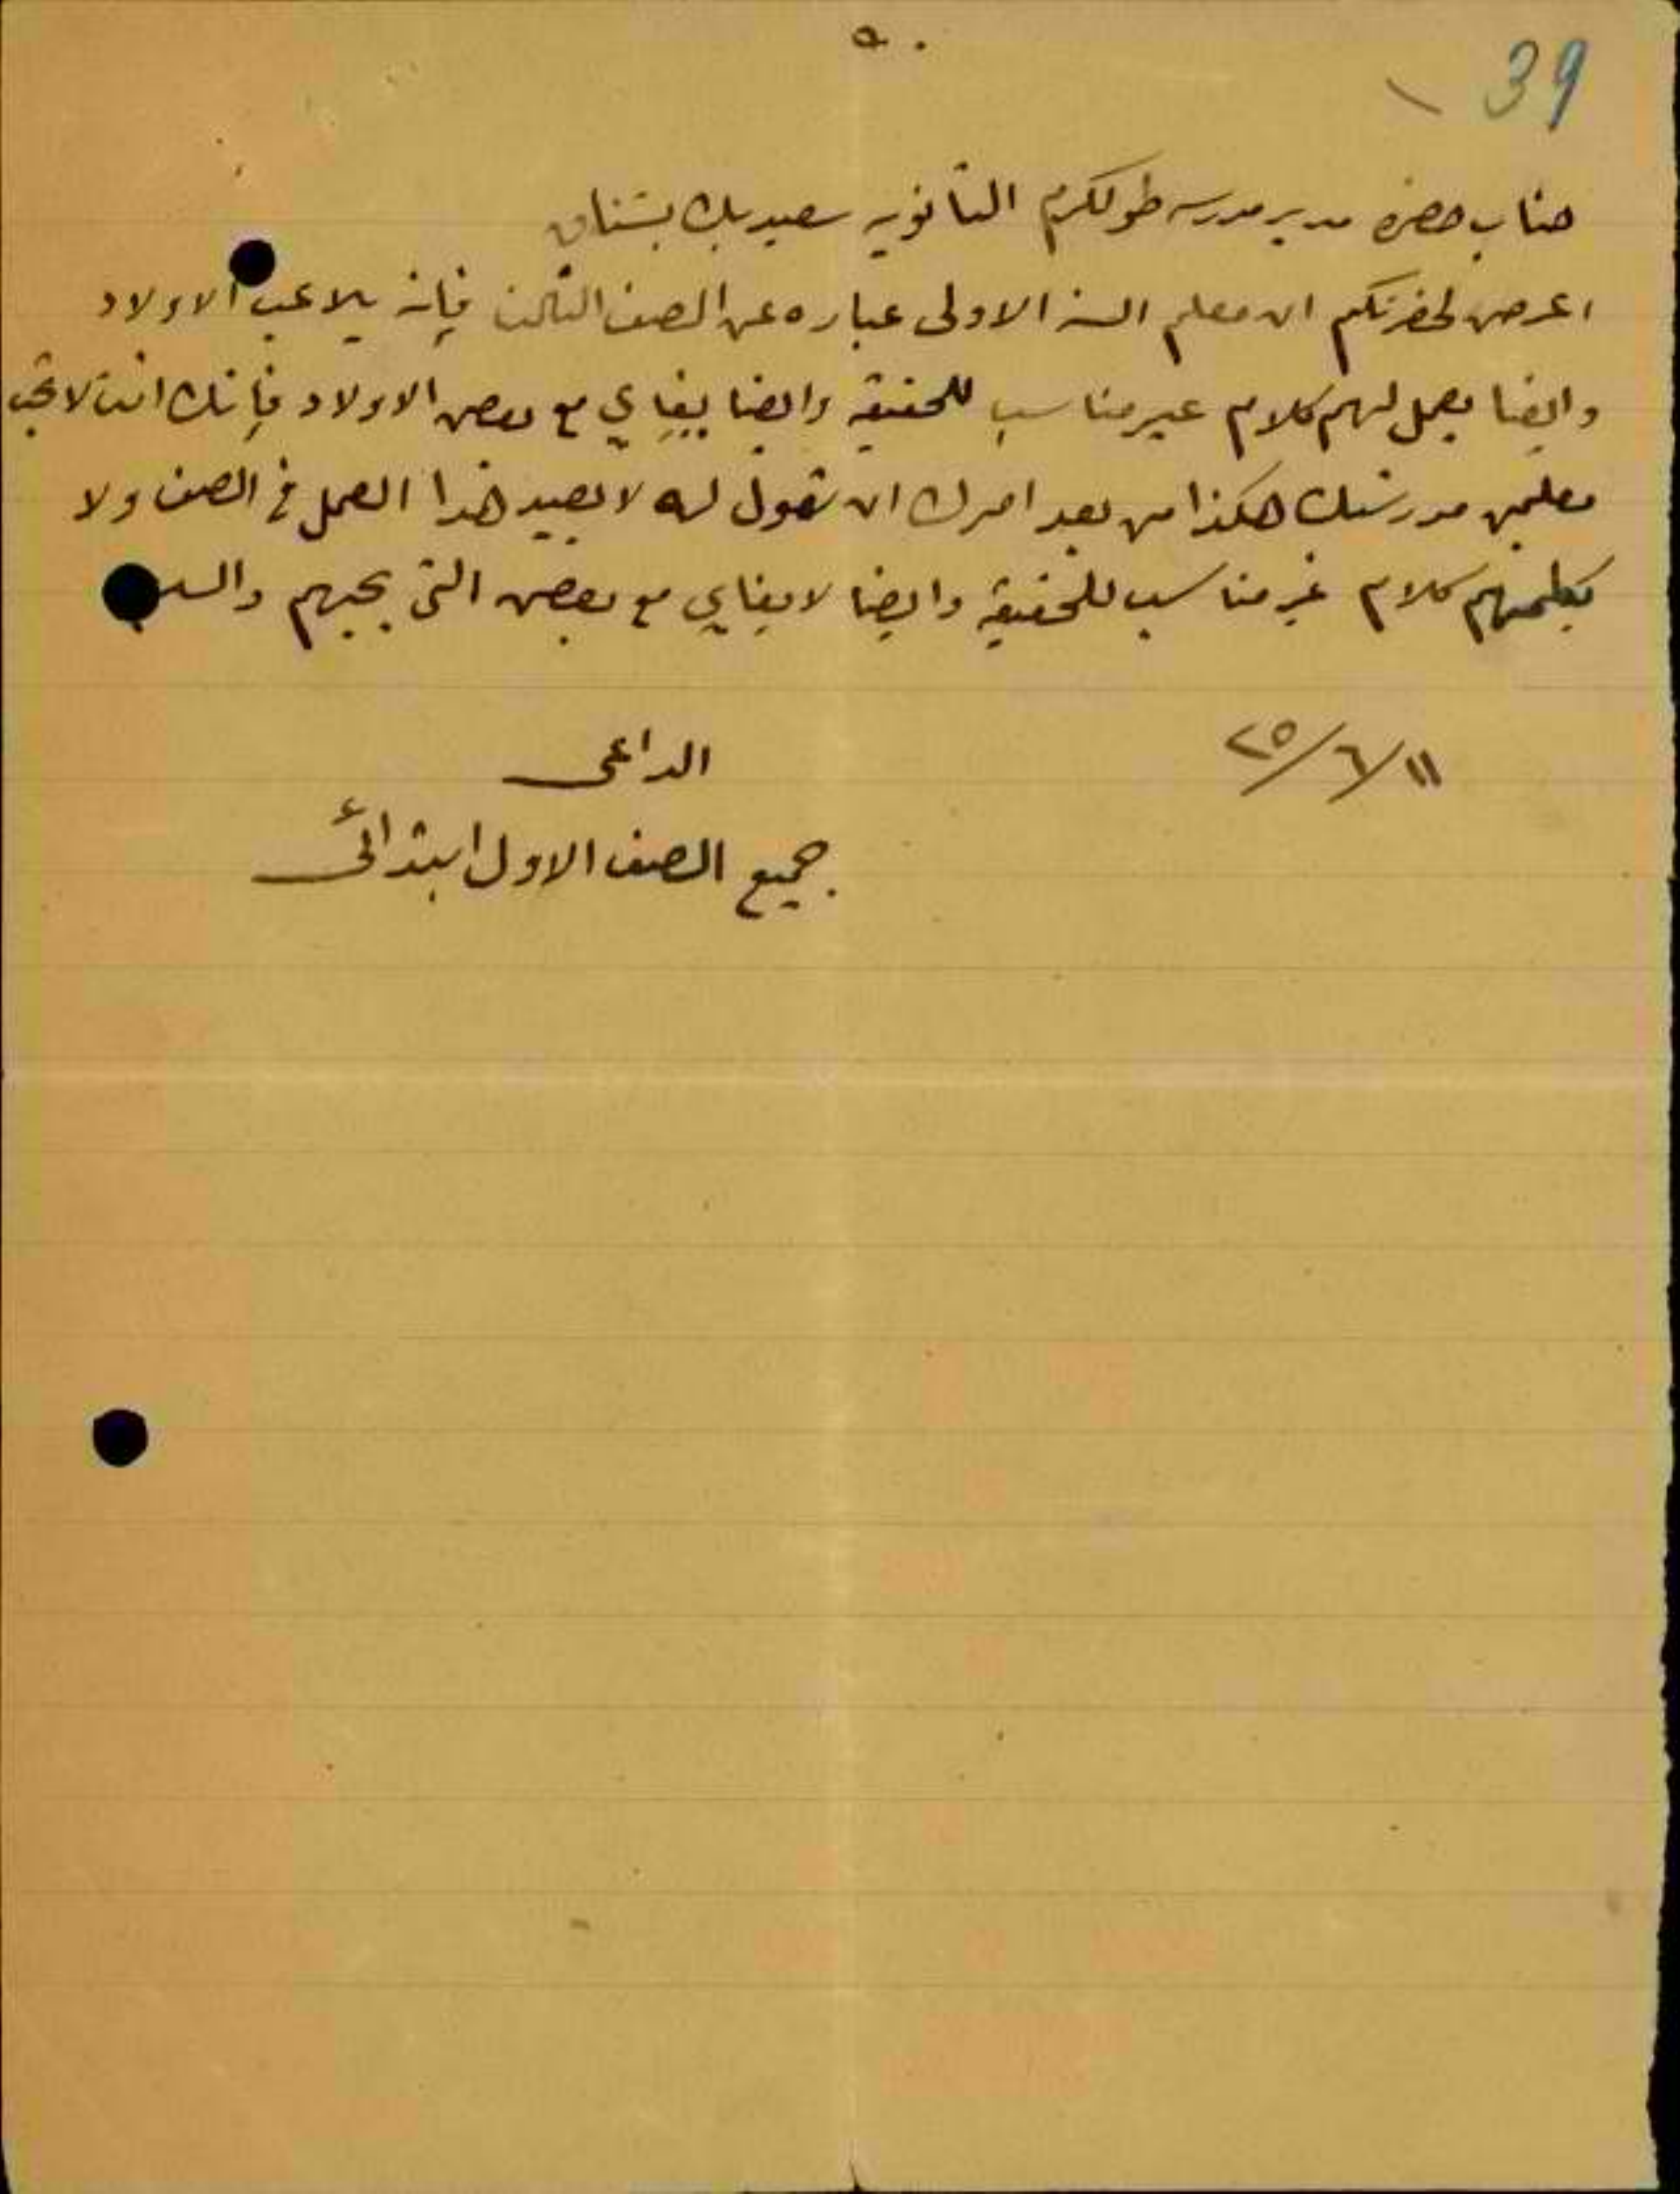 ٥٠
39
جناب حضرة مدير مدرسه طولكرم الثانويه سعيد بك
اعرض لحضرتكم ان معلم السنه الاولى عباره عن الصف الثالث فإنه يلاعب الاولاد
وايضا يعمل لهم كلام غير مناسب للحقيقة وايضا يغاي مع بعض الاولاد فإنك انت لا تحب
معلمين مدرستك هكذا من بعد امرك ان تقول له لا يعيد هذا العمل في الصف ولا
يكلمهم كلام غير مناسب للحقيقة وايضا لا يغاي مع بعض التى يحبهم
١١/٦/٢٥
الداعى
جميع الصف الاول ابتدائى